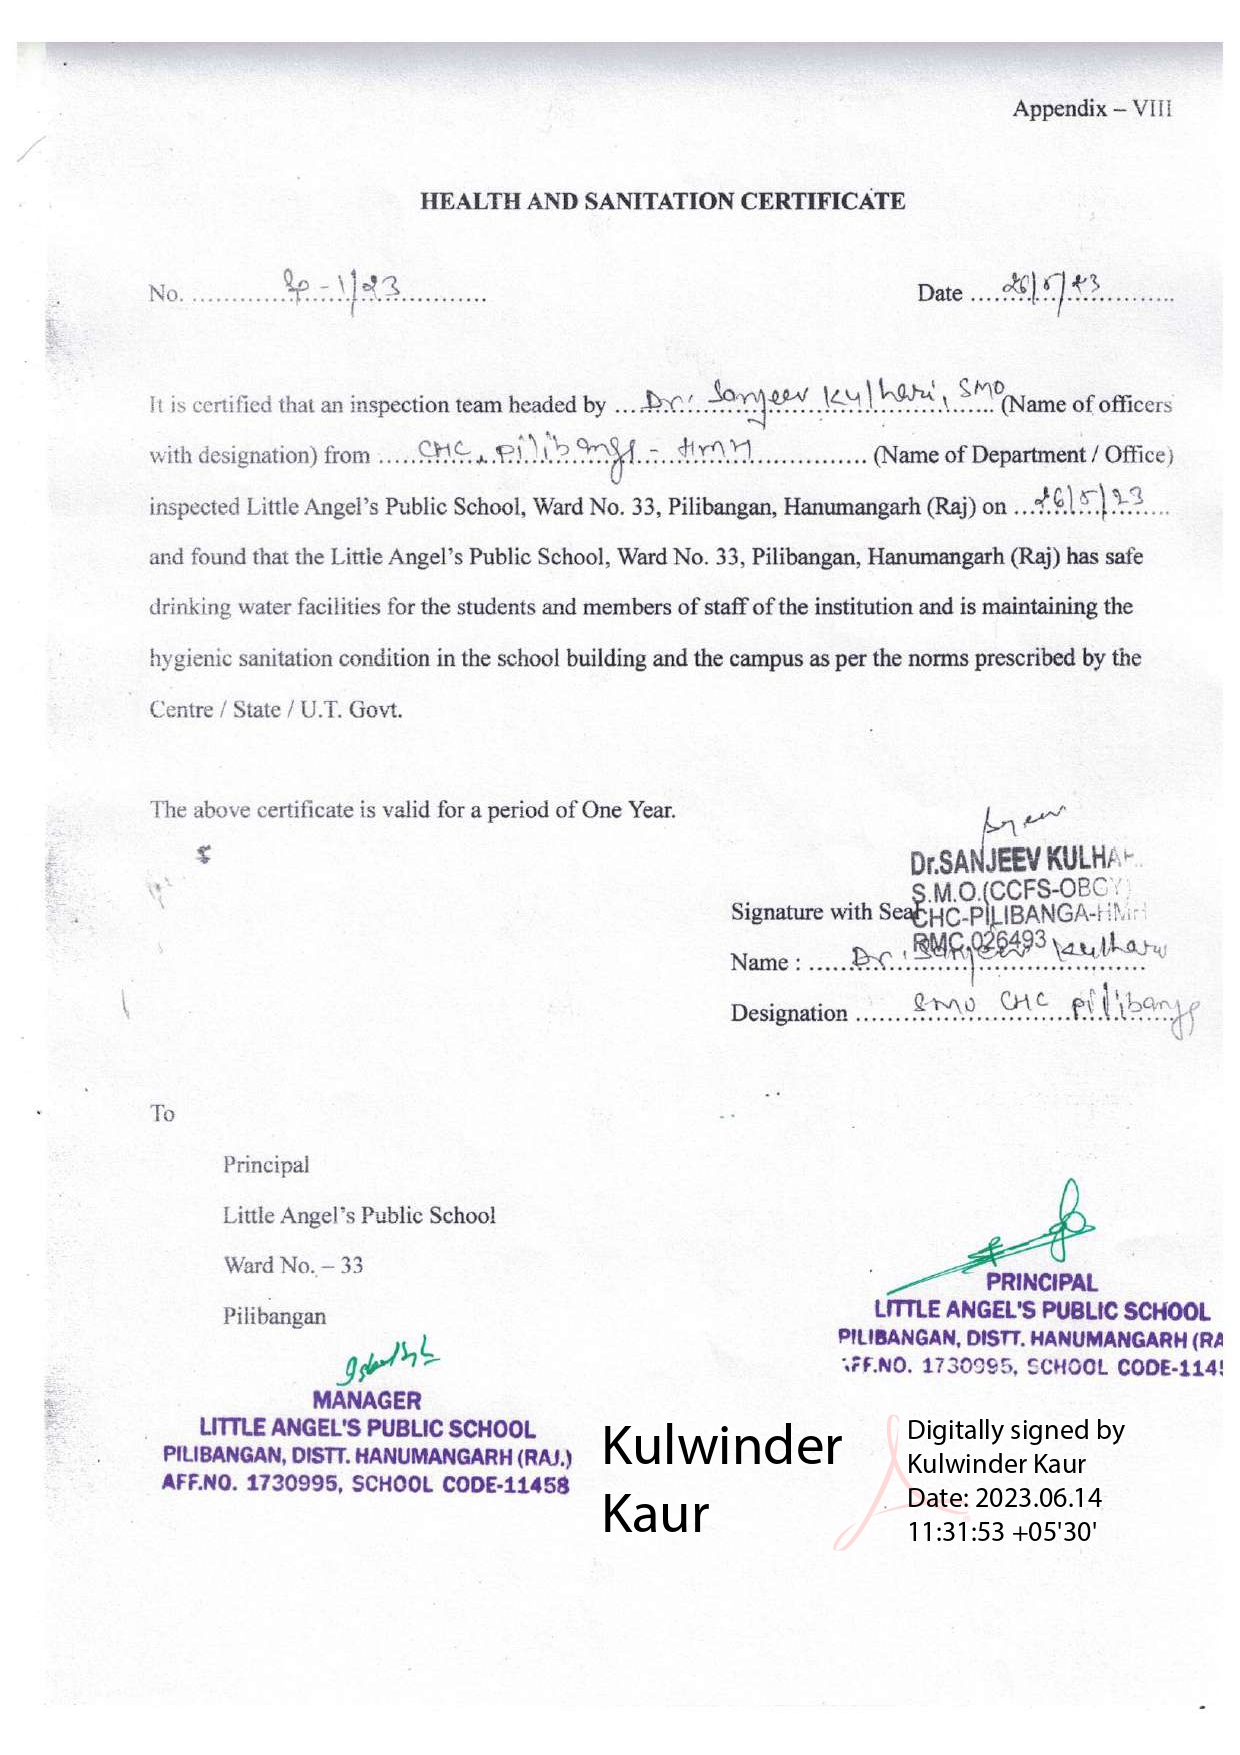 Appendix – VIII
HEALTH AND SANITATION CERTIFICATE
No. .......Sp - 1/23.......
Date ....26/5/23....
It is certified that an inspection team headed by ...Dr. Sanjeev Kulhari, SMO (Name of officers
with designation) from .....CHC, Pilibanga - HMH.......... (Name of Department / Office)
inspected Little Angel's Public School, Ward No. 33, Pilibangan, Hanumangarh (Raj) on ...26/5/23....
and found that the Little Angel's Public School, Ward No. 33, Pilibangan, Hanumangarh (Raj) has safe
drinking water facilities for the students and members of staff of the institution and is maintaining the
hygienic sanitation condition in the school building and the campus as per the norms prescribed by the
Centre / State / U.T. Govt.
The above certificate is valid for a period of One Year.
Dr.SANJEEV KULHA
S.M.O.(CCFS-OBGY)
Signature with Seal
CHC-PILIBANGA-HMH
RMC.026493
Name : .....Dr. Sanjeev Kulhari
Designation ......SMO CHC Pilibanga
To
Principal
Little Angel's Public School
Ward No. – 33
Pilibangan
PRINCIPAL
LITTLE ANGEL'S PUBLIC SCHOOL
PILIBANGAN, DISTT. HANUMANGARH (RA
AFF.NO. 1730995, SCHOOL CODE-1145
MANAGER
LITTLE ANGEL'S PUBLIC SCHOOL
PILIBANGAN, DISTT. HANUMANGARH (RAJ.)
AFF.NO. 1730995, SCHOOL CODE-11458
Kulwinder
Kaur
Digitally signed by
Kulwinder Kaur
Date: 2023.06.14
11:31:53 +05'30'